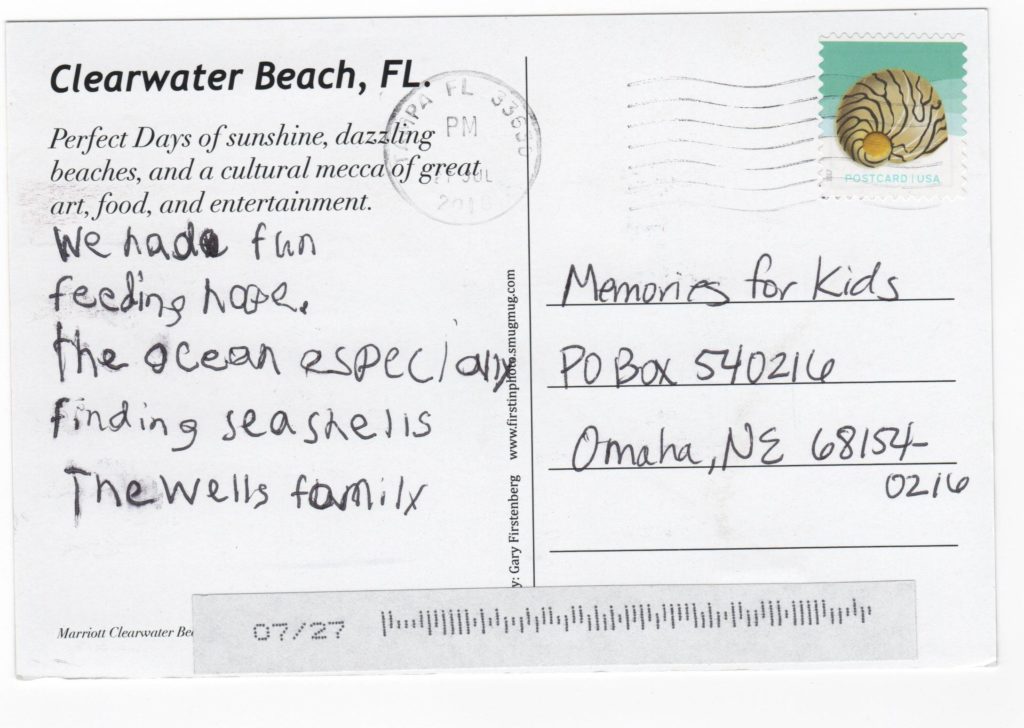 Clearwater Beach, FL.
Perfect Days of sunshine, dazzling
beaches, and a cultural mecca of great
art, food, and entertainment.
We had fun
feeding hope.
The ocean especially
finding seashells
The Wells family
Marriott Clearwater
y: Gary Firstenberg www.firstinphoto.smugmug.com
TAMPA FL
PM
JUL
POSTCARD | USA
Memories for Kids
PO Box 540216
Omaha, NE 68154-
0216
07/27